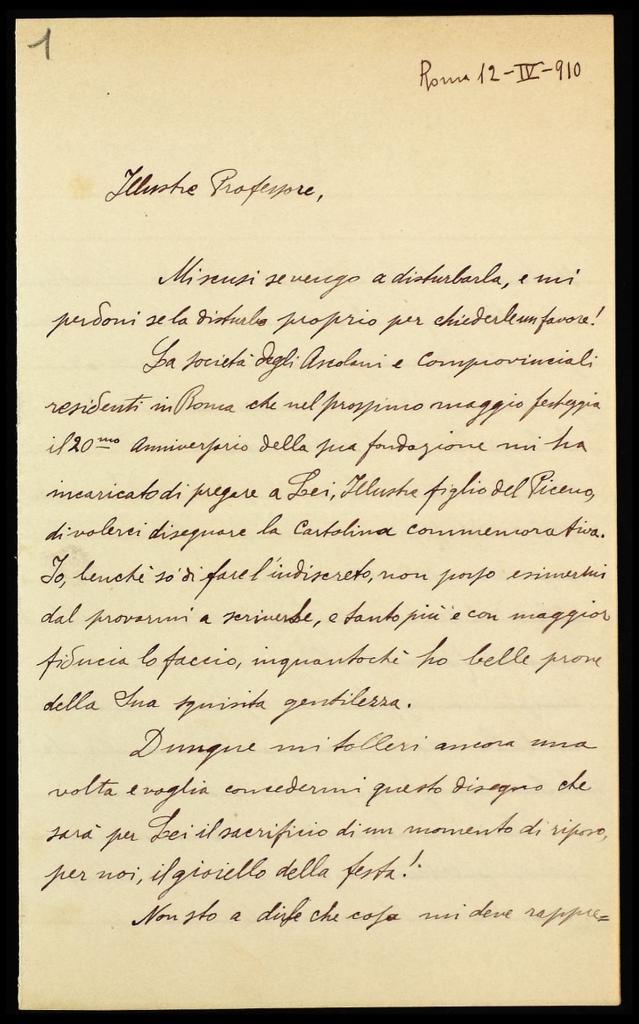 1
Roma 12-IV-910
Illustre Professore,
Mi scusi se vengo a disturbarla, e mi
perdoni se la disturbo proprio per chiederle un favore!
La società degli Ascolani e Comprovinciali
residenti in Roma che nel prossimo maggio festeggia
il 20mo Anniversario della sua fondazione mi ha
incaricato di pregare a Lei, Illustre figlio del Piceno,
di volerci disegnare la Cartolina commemorativa.
Io, benchè sò di fare l'indiscreto, non posso esimermi
dal provarmi a scriverLe, e tanto più e con maggior
fiducia lo faccio, inquantochè ho belle prove
della Sua squisita gentilezza.
Dunque mi tolleri ancora una
volta e voglia concedermi questo disegno che
sarà per Lei il sacrificio di un momento di riposo,
per noi, il gioiello della festa!
Non sto a dirLe che cosa mi deve rappre=